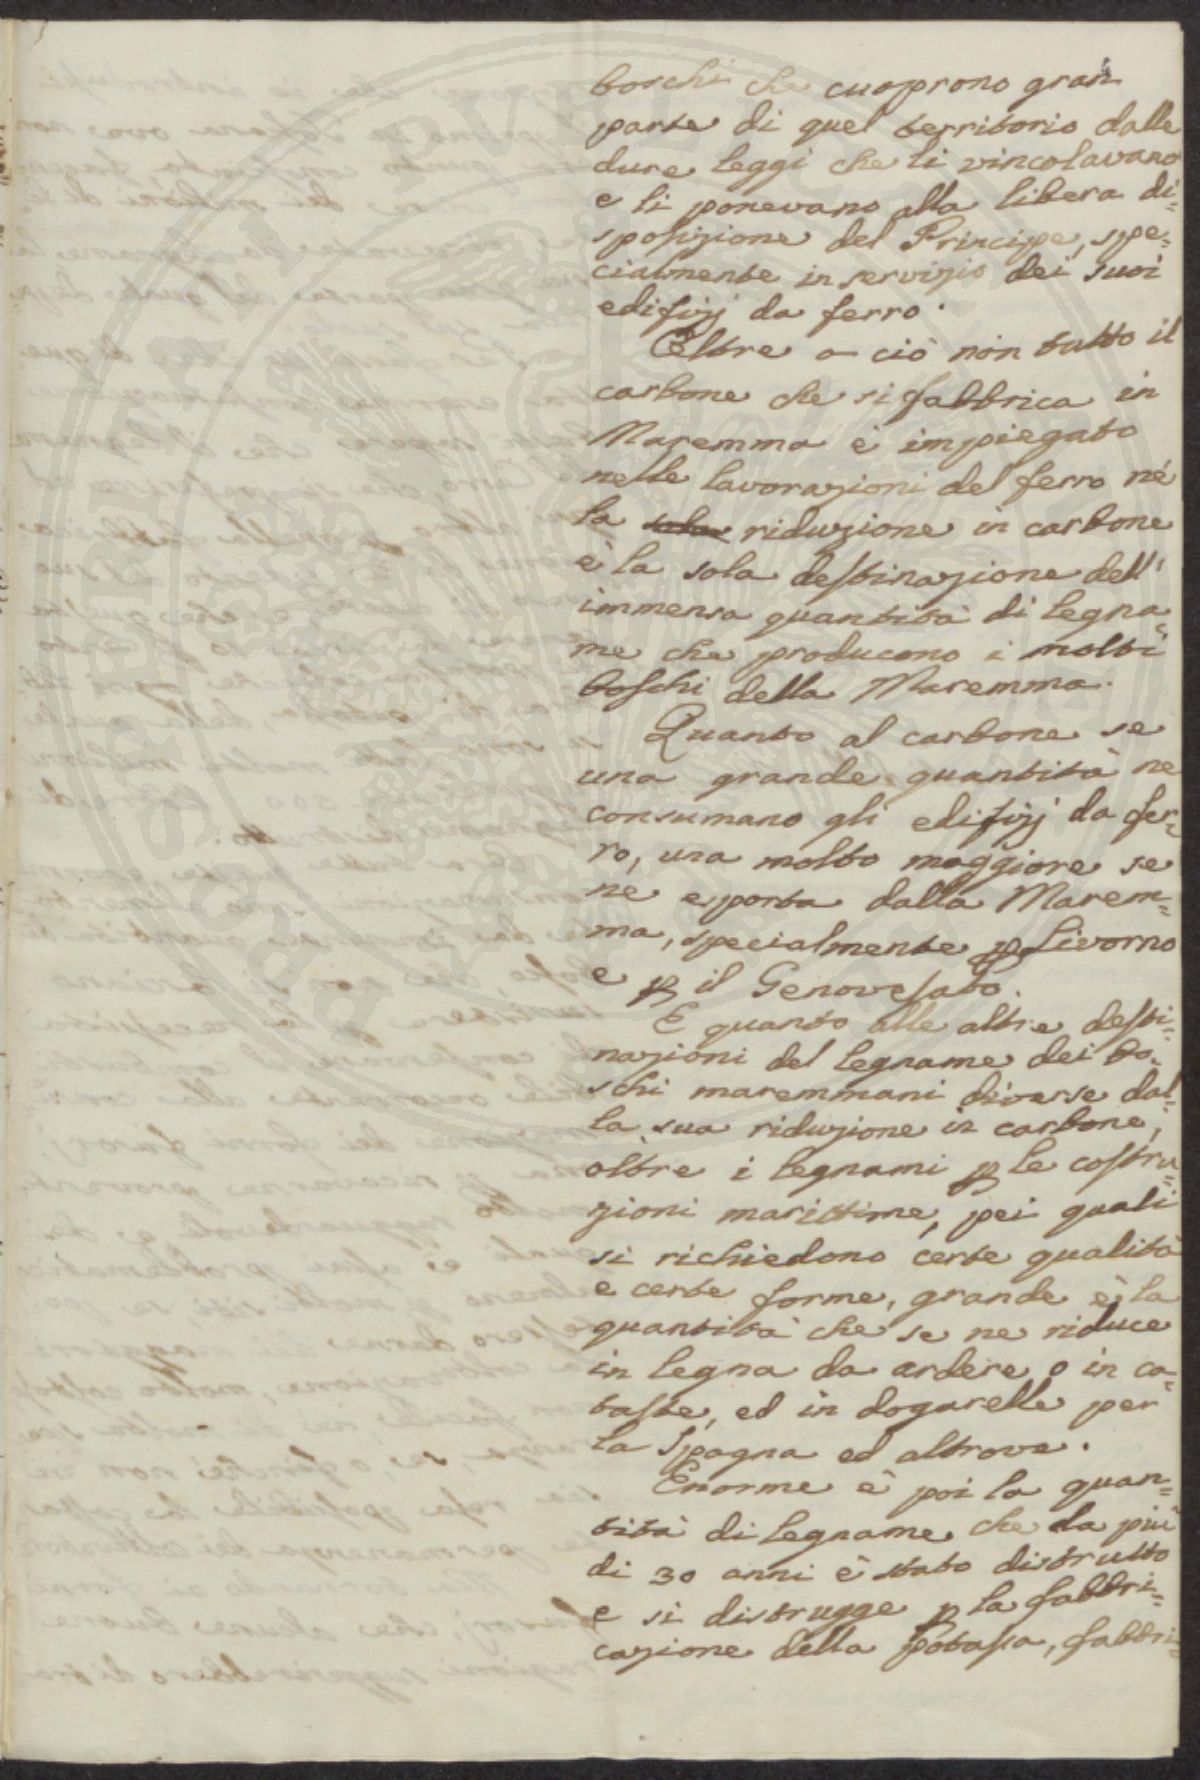 boschi che cuoprono gran
parte di quel territorio dalle
dure leggi che li vincolavano
e li ponevano alla libera di=
sposizione del Principe, spe=
cialmente in servizio dei suoi
edifizj da ferro.
Oltre a ciò non tutto il
carbone che si fabbrica in
Maremma è impiegato
nelle lavorazioni del ferro né
la sola riduzione in carbone
è la sola destinazione dell'
immensa quantità di legna=
me che producono i molti
boschi della Maremma.
Quanto al carbone se
una grande quantità ne
consumano gli edifizj da fer=
ro, una molto maggiore se
ne esporta dalla Marem=
ma, specialmente p Livorno
e p il Genovesato.
E quanto alle altre desti=
nazioni del legname dei bo=
schi maremmani diverse dal=
la sua riduzione in carbone,
oltre i legnami p le costru=
zioni marittime, pei quali
si richiedono certe qualità
e certe forme, grande è la
quantità che se ne riduce
in legna da ardere o in ca=
taste, ed in dogarelle per
la Spagna ed altrove.
Enorme è poi la quan=
tità di legname che da più
di 30 anni è stato distrutto
e si distrugge p la fabbri=
cazione della potassa, fabbri=